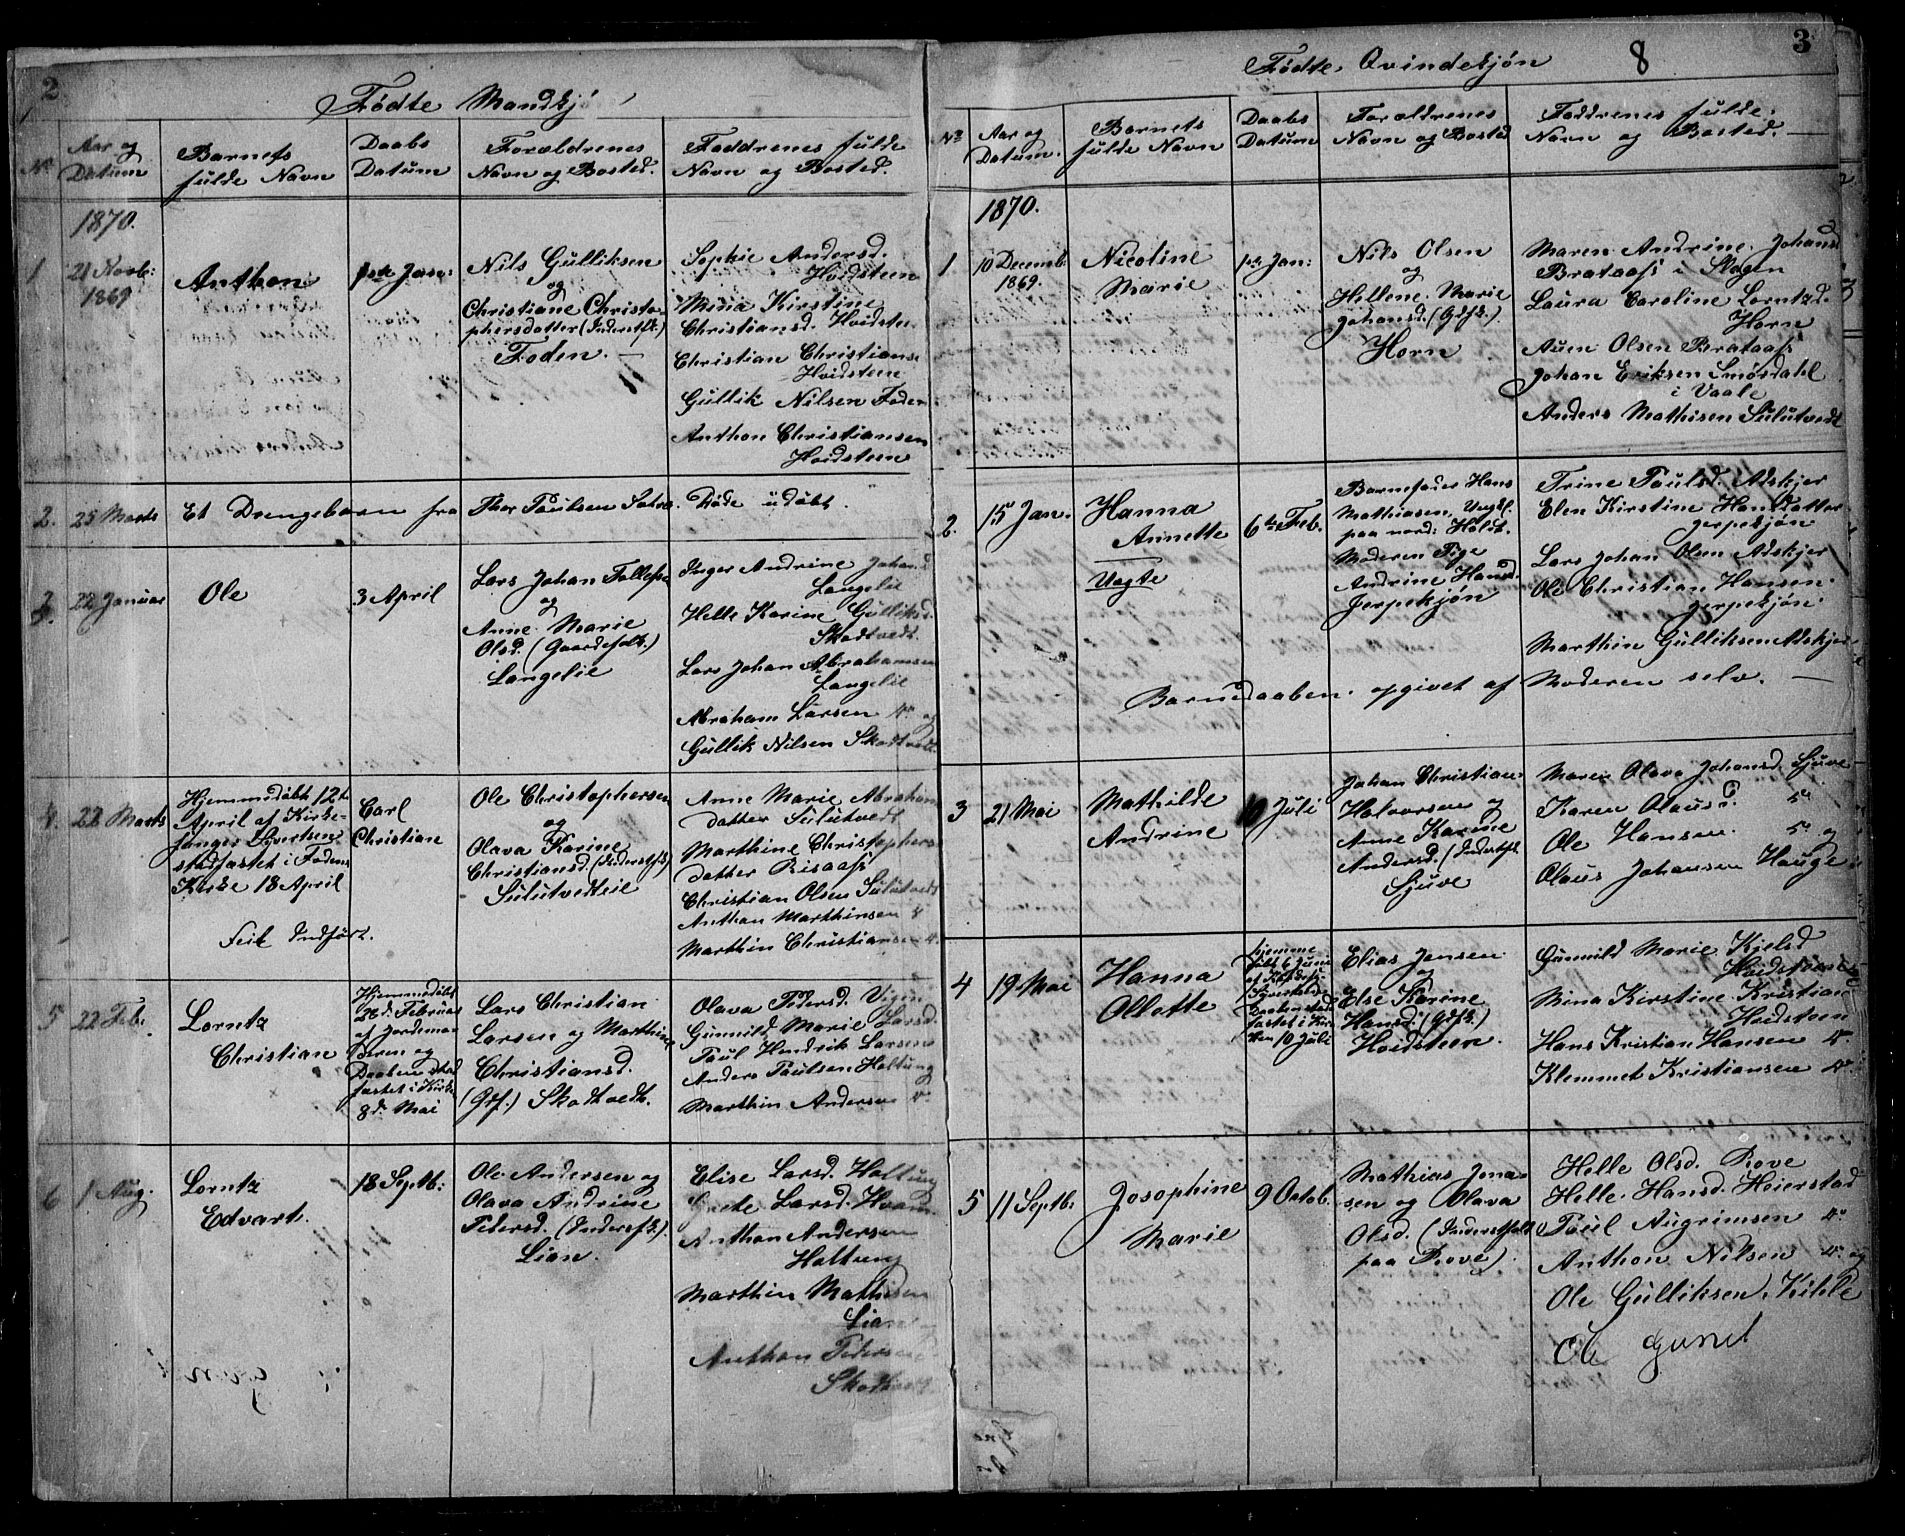 2
Fødte Mandkj
No
Aar og
Datum
Barnets
fulde Navn
Daabs
Datum
Forældrenes
Navn og Bosted.
Faddrenes fulde
Navn og Bosted.
1870.
1
21 Novb:
1869
Anthon
1ste Jan:
Nils Gulliksen
og
Christiane Christo-
phersdatter (Inderstfk.)
Foden.
Sophie Andersd.
Hvidsteen
Mina Kirstine
Christiansd. Hvidsteen
Christian Christianse
Hvidsteen
Gullik Nilsen Foden
Anthon Christiansen
Hvidsteen
2.
25 Marts
Et Drengebarn fra
Thor Paulsen
Døde udøbt.
3.
22 Januar
Ole
3 April
Lars Johan Tollefse
og
Anne Marie
Olsd. (Gaardsfolk.)
Langelie
Inger Andrine Johansd
Langelie
Helle Karine Gulliksd.
Skodtvedt.
Lars Johan Abrahamsen
Langelie
Abraham Larsen do og
Gullik Nilsen Skodtvedt
4.
22 Marts
Hjemmedøbt 12te
April af Kirke-
sanger Syvertsen
stadfæstet i Fodens
Kirke 18 April
Feil Indført.
Carl
Christian
Ole Christophersen
og
Olava Karine
Christiansd. (Inderstfk)
Sulutvedteie
Anne Marie Abraham
datter Sulutvedt
Marthine Christophers
datter Risaass
Christian Olsen Sulutvedt
Anthon Marthinsen do
Marthin Christiansen do.
5
22 Feb.
Lorntz
Christian
Hjemmedøbt
26d. Februar
af Jordemo-
deren og
Daaben stad
fæstet i Kirke
8d. Mai
Lars Christian
Larsen og Marthine
Christiansd.
(Gdf.) Skodtvedt.
Olava Pedersd.
Gunnild Marie Larsd.
Paul Hendrik Larsen
Anders Paulsen Holtung
Marthin Andersen do.
6
1 Aug.
Lorntz
Edvart.
18 Septb:
Ole Andersen og
Olava Andrine
Pedersd. (Inderstfk).
Lian.
Elise Larsd. Holtung
Grete Larsd. Hvam
Anthon Andersen
Holtung
Marthin Mathisen
Lian
Anthon Pedersen
Skodtvedt
3
8
Fødte Qvindekjøn
No
Aar og
Datum.
Barnets
fulde Navn
Daabs
Datum
Forældrenes
Navn og Bosted
Faddrenes fulde
Navn og Bosted.
1870.
1
10 Decemb:
1869.
Nicoline
Marie
1ste Jan:
Nils Olsen
og
Hellene Marie
Johansd. (Gdfk.)
Horn
Maren Andrine Johansd
Brataass i Slagen
Laura Caroline Lorntzd.
Horn
Auen Olsen Brataass
Johan Eriksen Smørdahl
i Vaale
Anders Mathisen Sulutvedt
2.
15 Jan.
Hanna
Annette
Uægte
6te Feb.
Barnefader Hans
Mathiasen, Ungk.
paa nord: Holst.
Moderen Pige
Andrine Hansd.
Jerpekjøn
Trine Paulsd. Adskjer
Elen Kirstine Hansdatter
Jerpekjøn
Lars Johan Olsen Adskjer
Ole Christian Hansen
Jerpekjøn.
Marthin Gulliksen Adskjer
Barnedaaben opgivet af Moderen selv.
3
21 Mai
Mathilde
Andrine
10 Juli
Johan Christian
Halvorsen og
Anne Karine
Andersd. (Inderstfk
Sjuve
Maren Olava Johansd. Sjuve
Karen Olausd. do
Ole Hansen do og
Olaus Johansen Hauge
4
19 Mai
Hanna
Ollette
hjemme
døbt 6 Juni
af Kirkes:
Syvertsen
Daaben stad
fæstet i Kir-
ken 10 Juli
Elias Jensen
og
Else Karine
Hansd. (Gdfk.)
Hvidsteen.
Gunnild Marie Kjelsd
Hvidsteen
Mina Kirstine Kristian
Hvidsteen
Hans Kristian Hansen do.
Klemmet Kristiansen do.
5
11 Septb:
Josophine
Marie
9 Octob.
Mathias Jona-
sen og Olava
Olsd. (Inderstfolk
paa Rove).
Helle Olsd. Rove
Helle Hansd. Heierstad
Paul Augrimsen do
Anthon Nilsen do og
Ole Gulliksen, Kihle
Ole